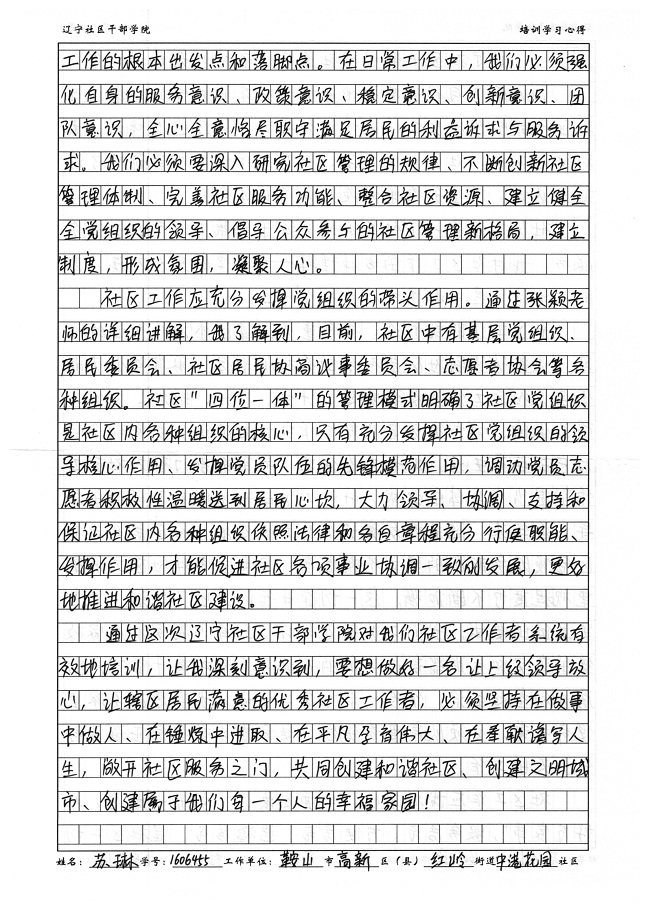 辽宁社区干部学院 培训学习心得
工作的根本出发点和落脚点。在日常工作中，我们必须强
化自身的服务意识、政策意识、稳定意识、创新意识、团
队意识，全心全意恪尽职守满足居民的利益诉求与服务诉
求。我们必须要深入研究社区管理的规律、不断创新社区
管理体制、完善社区服务功能、整合社区资源、建立健全
全党组织的领导、倡导公众参与的社区管理新格局，建立
制度，形成氛围，凝聚人心。
社区工作应充分发挥党组织的带头作用。通过张颖老
师的详细讲解，我了解到，目前，社区中有基层党组织、
居民委员会、社区居民协商议事委员会、志愿者协会等多
种组织。社区"四位一体"的管理模式明确了社区党组织
是社区内各种组织的核心，只有充分发挥社区党组织的领
导核心作用、发挥党员队伍的先锋模范作用，调动党员志
愿者积极性温暖送到居民心坎，大力领导、协调、支持和
保证社区内各种组织依照法律和各自章程充分行使职能、
发挥作用，才能促进社区各项事业协调一致的发展，更好
地推进和谐社区建设。
通过这次辽宁社区干部学院对我们社区工作者系统有
效地培训，让我深刻意识到，要想做好一名让上级领导放
心，让辖区居民满意的优秀社区工作者，必须坚持在做事
中做人、在锤炼中进取、在平凡孕育伟大、在奉献谱写人
生，敞开社区服务之门，共同创建和谐社区、创建文明城
市、创建属于我们每一个人的幸福家园！
姓名：苏琳 学号：1606455 工作单位：鞍山 市 高新 区（县） 红岭 街道 中港花园 社区